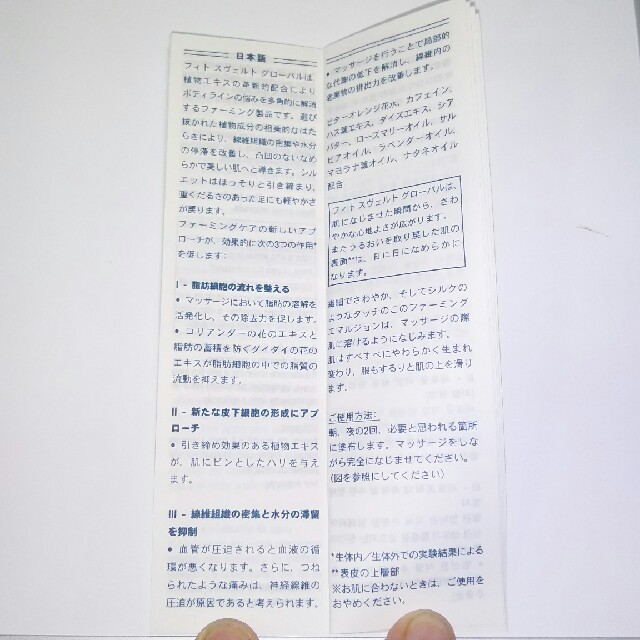 日本語
フィト スヴェルト グローバルは
植物エキスの革新的配合により
ボディラインの悩みを多角的に解消
するファーミング製品です。選び
抜かれた植物成分の相乗的なはた
らきにより、繊維組織の密集や水分
の停滞を改善し、凸凹のないなめ
らかで美しい肌へと導きます。シル
エットはほっそりと引き締まり、
重くだるさのあった足にも軽やかさ
が戻ります。
ファーミングケアの新しいアプ
ローチが、効果的に次の3つの作用*
を促します：
I - 脂肪細胞の流れを整える
• マッサージにおいて脂肪の溶解を
活発化し、その除去力を促します。
• コリアンダーの花のエキスと
脂肪の蓄積を防ぐダイダイの花の
エキスが脂肪細胞の中での脂質の
流動を抑えます。
II - 新たな皮下細胞の形成にアプ
ローチ
• 引き締め効果のある植物エキス
が、肌にピンとしたハリを与え
ます。
III - 繊維組織の密集と水分の滞留
を抑制
• 血管が圧迫されると血液の循
環が悪くなります。さらに、つね
られたような痛みは、神経線維の
圧迫が原因であると考えられます。
• マッサージを行うことで局部的
な代謝の低下を解消し、繊維内の
老廃物の排出力を改善します。
ビターオレンジ花水、カフェイン、
ハス葉エキス、ダイズエキス、シア
バター、ローズマリーオイル、サル
ビアオイル、ラベンダーオイル、
マヨラナ葉オイル、ナタネオイル
配合
フィト スヴェルト グローバルは、
肌になじませた瞬間から、さわ
やかな心地よさが広がります。
またうるおいを取り戻した肌の
表面**は、日に日になめらかに
なります。
繊細でさわやか、そしてシルクの
ようなタッチのこのファーミング
エマルジョンは、マッサージの際
肌に溶けるようになじみます。
肌はすべすべにやわらかく生まれ
変わり、服もするりと肌の上を滑り
ます。
ご使用方法：
朝、夜の2回、必要と思われる箇所
に塗布します。マッサージをしな
がら完全になじませてください。
(図を参照にしてください)
*生体内/生体外での実験結果による
**表皮の上層部
※お肌に合わないときは、ご使用を
おやめください。